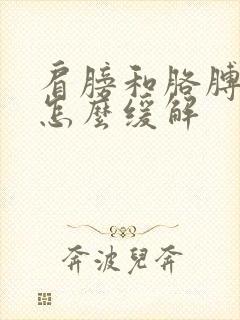 肩膀和胳膊
怎麼緩解
奔波兒奔